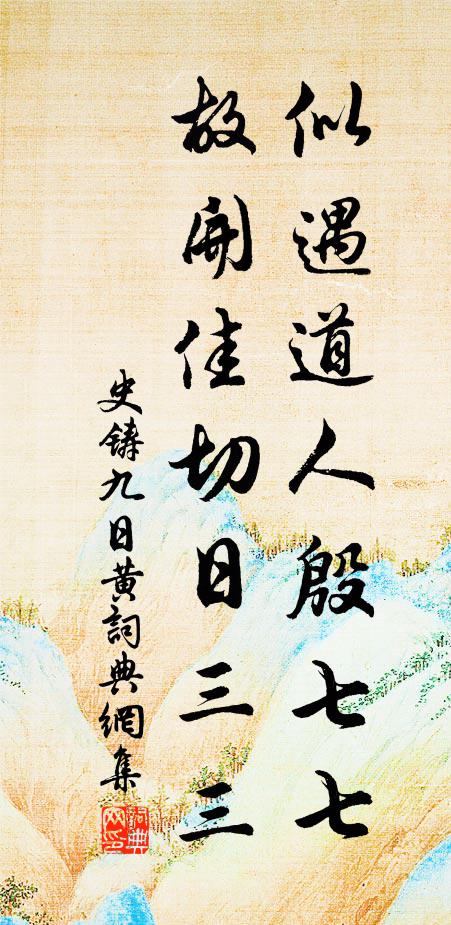 似遇道人殷七七
故開佳切日三三
史鑄九日黄詞典網集
詞典
网印